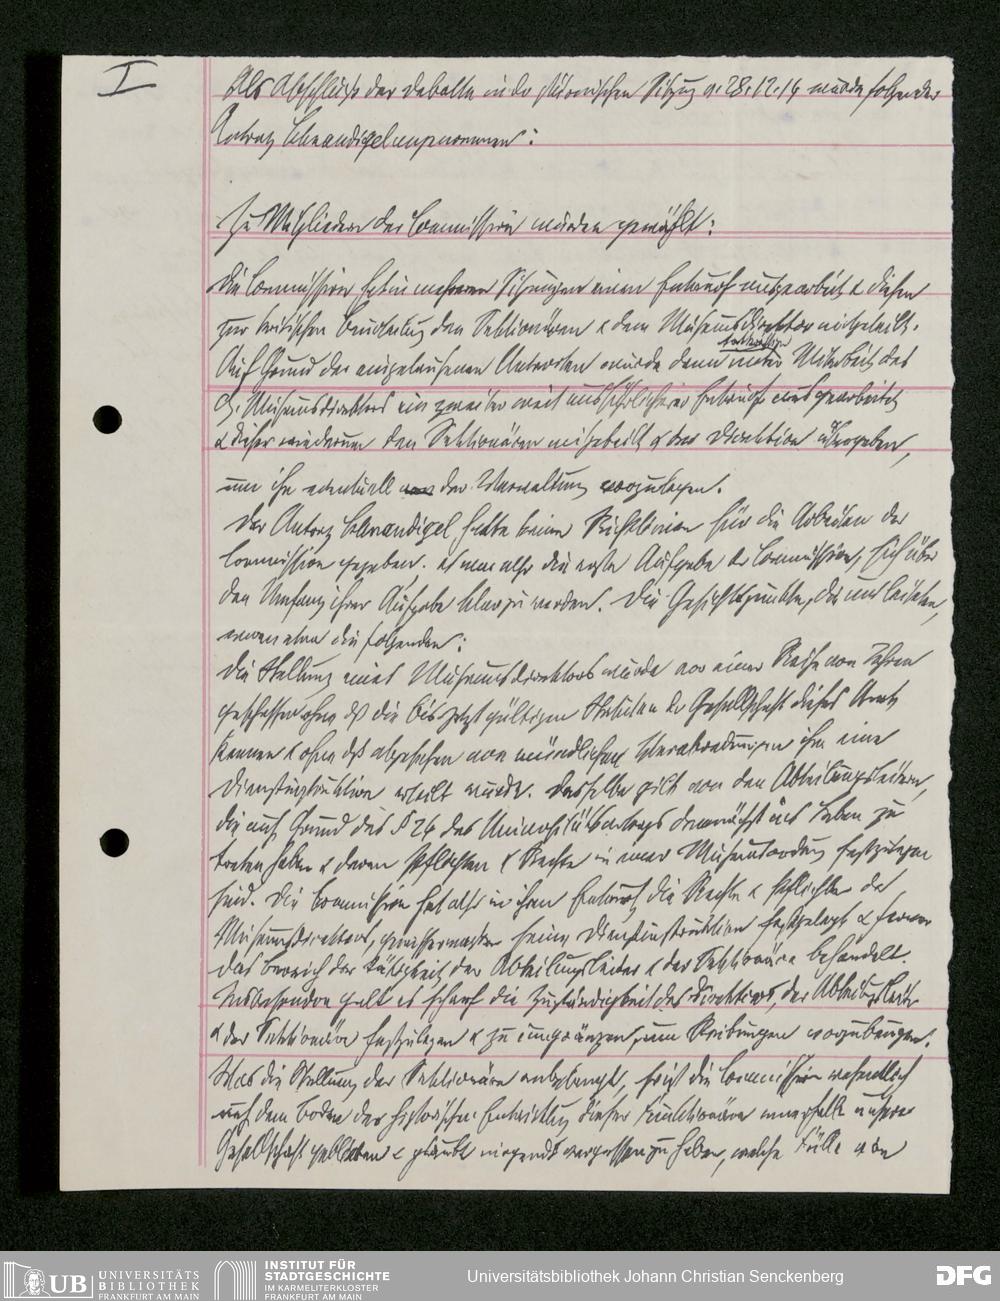 I
Als Abschluß der Debatte in der stürmischen Sitzung v. 28.12.14 wurde folgender
Antrag Schwandigel angenommen:
Zu Mitgliedern der Commission wurden gewählt:
Die Commission hat in mehreren Sitzungen einen Entwurf ausgearbeitet & diesen
zur kritischen Beurteilung den Sektionären & dem Museumsdirektor mitgeteilt.
Auf Grund der eingelaufenen Antworten wurde dann unter Mitarbeit des
H. Museumsdirektors ein zweiter weit ausführlicherer Entwurf ausgearbeitet
& dieser wiederum den Sektionären mitgeteilt & der Direktion übergeben,
um ihn eventuell der Verwaltung vorzulegen.
Der Antrag Schwandigel hatte keine Richtlinien für die Arbeiten der
Commission gegeben. Es war also die erste Aufgabe der Commission, sich über
den Umfang ihrer Aufgabe klar zu werden. Die Gesichtspunkte, die uns leiteten,
waren etwa die folgenden:
Die Stellung eines Museumsdirektors wurde vor einer Reihe von Jahren
geschaffen ohne daß die bis jetzt gültigen Statuten der Gesellschaft dieses Amt
kennen & ohne daß abgesehen von mündlichen Verabredungen ihm eine
Dienstinstruktion erteilt wurde. Dasselbe gilt von den Abteilungsleitern,
die auf Grund des § 26 des Universitätsvertrags demnächst ins Leben zu
treten haben & deren Pflichten & Rechte in einer Museumsordnung festzulegen
sind. Die Commission hat also in ihrem Entwurf die Rechte & Pflichten des
Museumsdirektors, gewissermaßen seine Dienstinstruktion festgelegt & ferner
das Bereich der Tätigkeit der Abteilungsleiter & der Sektionäre behandelt.
Insbesondere galt es scharf die Zuständigkeit des Direktors, der Abteilungsleiter
& der Sektionäre festzulegen & zu umgrenzen, um Reibungen vorzubeugen.
Was die Stellung der Sektionäre anbelangt, so ist die Commission wesentlich
auf dem Boden der historischen Entwicklung dieser Funktionäre innerhalb unserer
Gesellschaft geblieben & glaubt nirgends vergessen zu haben, welche Fülle von
UB UNIVERSITÄTS
BIBLIOTHEK
FRANKFURT AM MAIN
INSTITUT FÜR
STADTGESCHICHTE
IM KARMELITERKLOSTER
FRANKFURT AM MAIN
Universitätsbibliothek Johann Christian Senckenberg
DFG